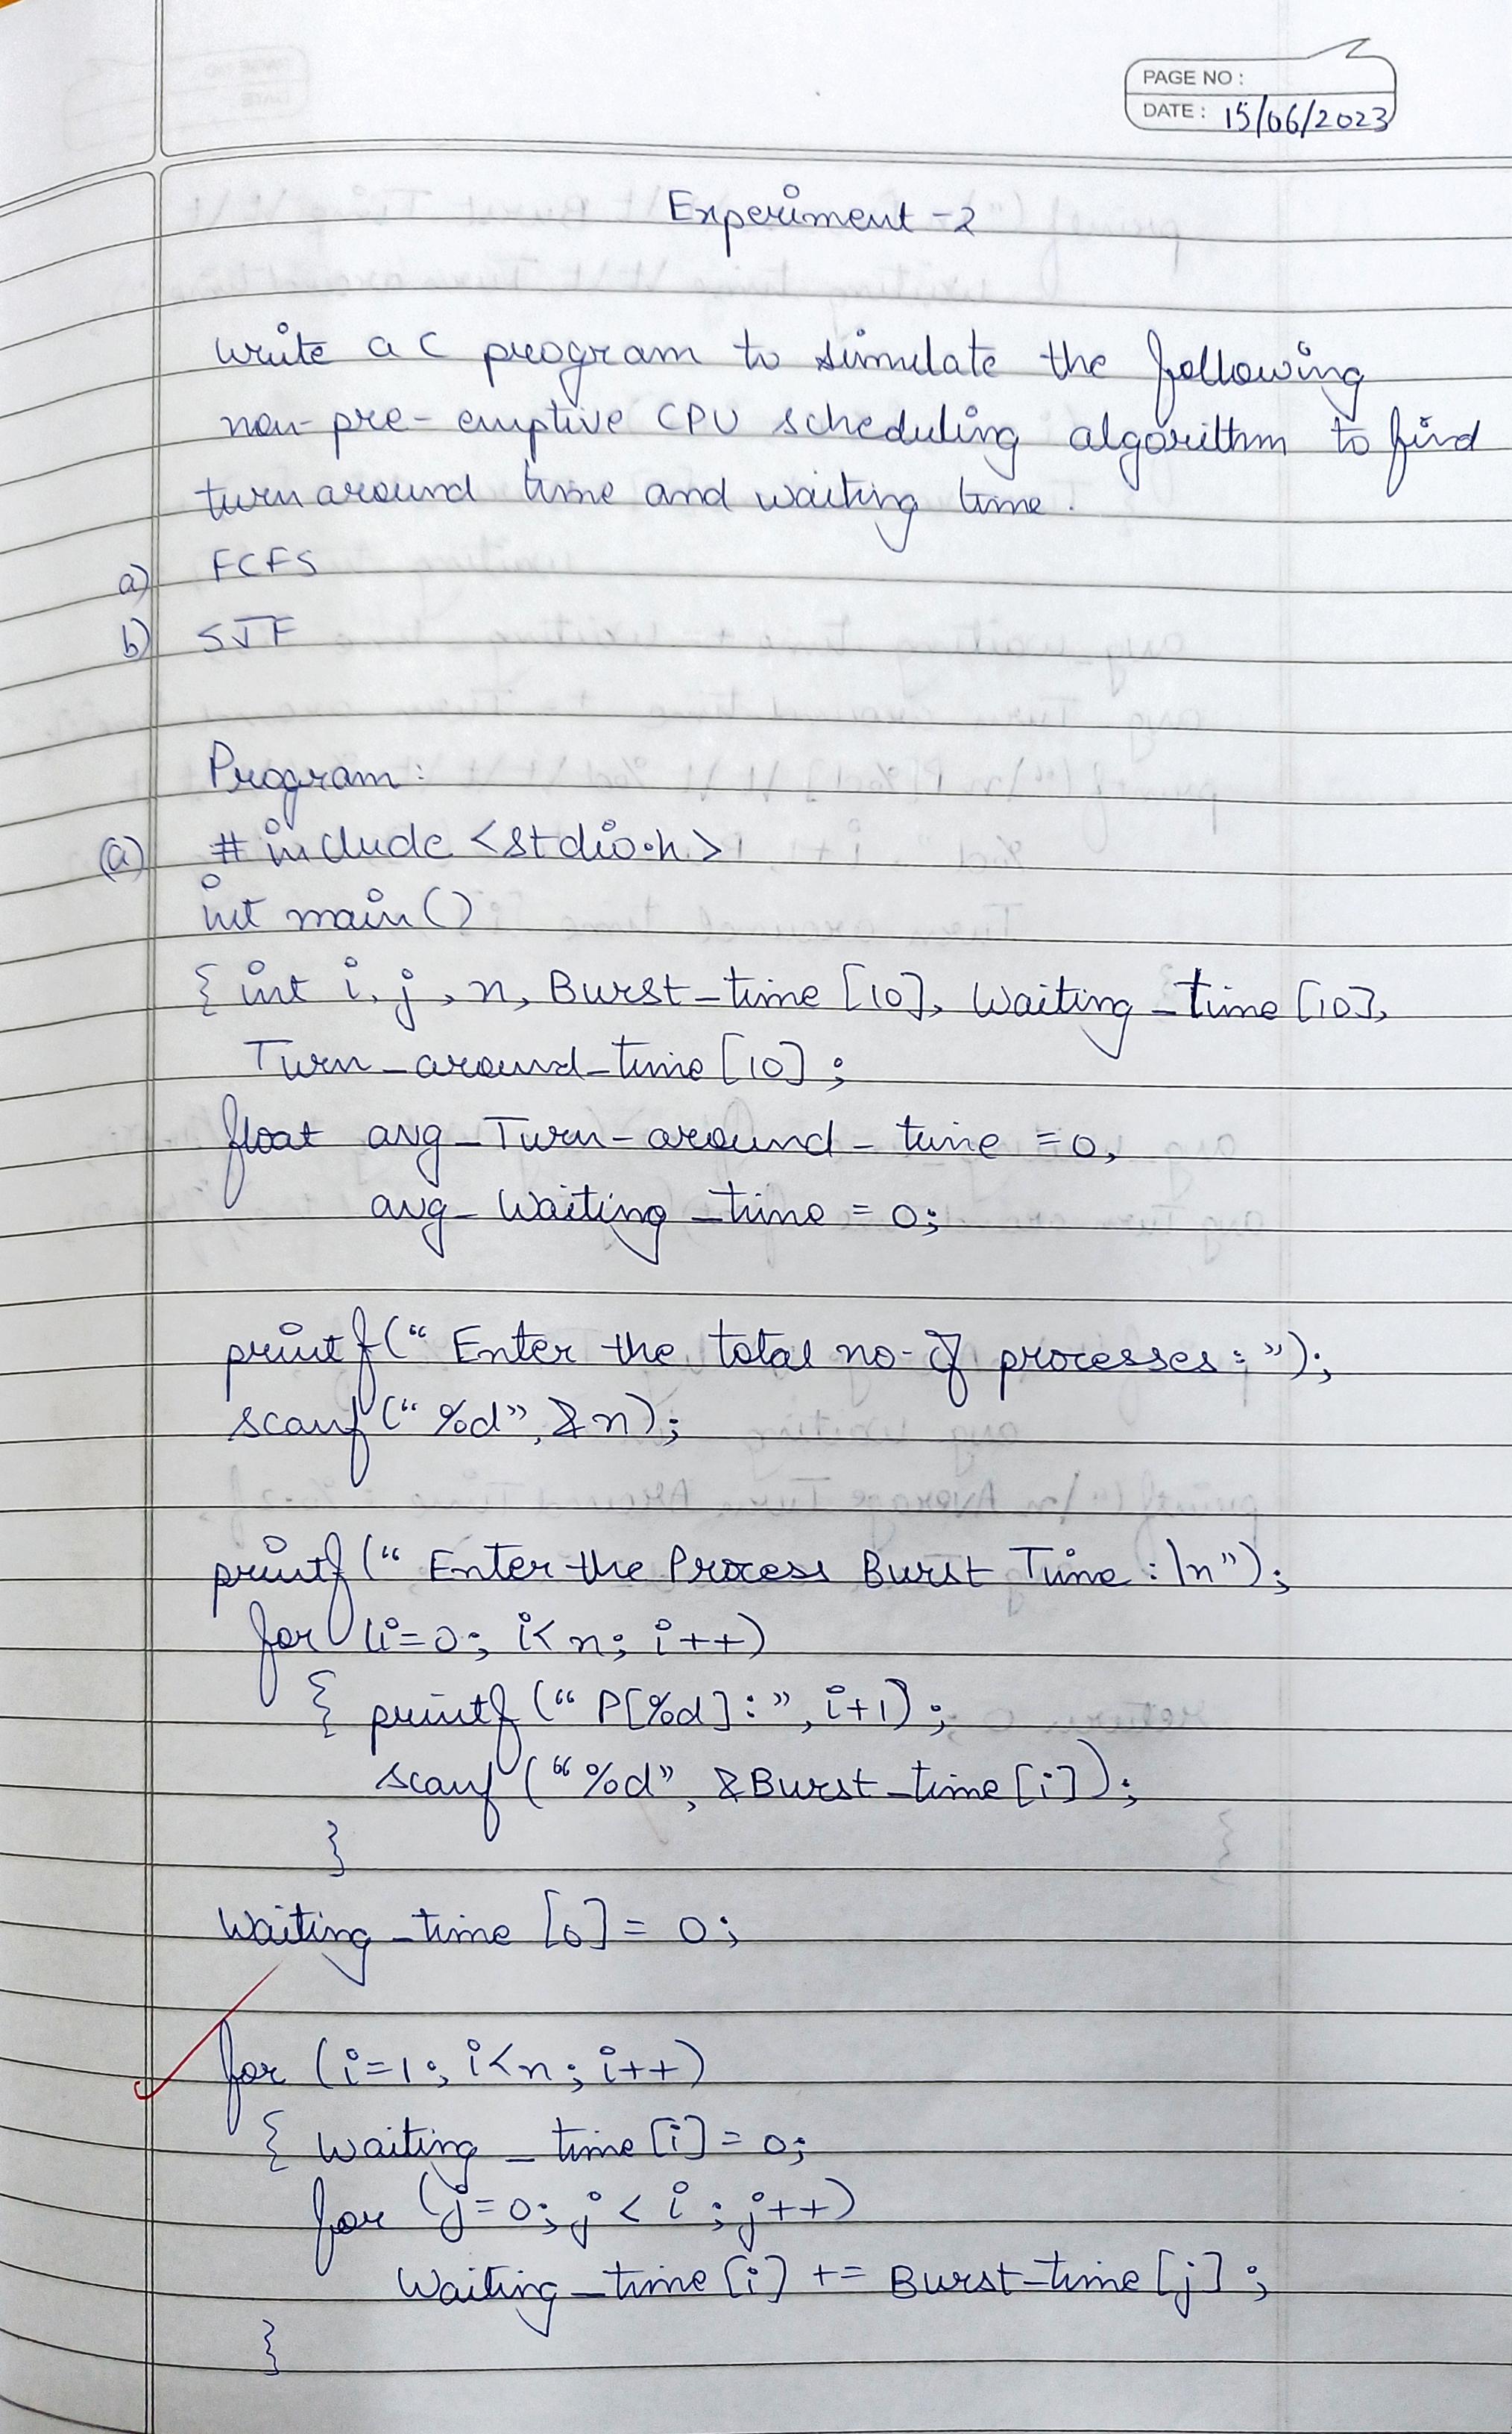 PAGE NO :
DATE : 15/06/2023
Experiment - 2
Write a C program to simulate the following
non-pre-emptive CPU scheduling algorithm to find
turn around time and waiting time.
a) FCFS
b) SJF
Program :
(a) # include <stdio.h>
int main ()
{ int i, j, n, Burst_time [10], Waiting_time [10],
Turn_around_time [10] ;
float avg_Turn_around_time = 0,
avg_Waiting_time = 0;
printf (“ Enter the total no. of processes : ”);
scanf (“ %d”, &n);
printf (“ Enter the Process Burst Time : \n”);
for (i=0; i<n; i++)
{ printf (“ P[%d] : ”, i+1);
scanf (“%d”, &Burst_time [i]);
}
Waiting_time [0] = 0;
for (i=1; i<n; i++)
{ Waiting_time [i] = 0;
for (j=0; j < i ; j++)
Waiting_time [i] += Burst_time [j] ;
}